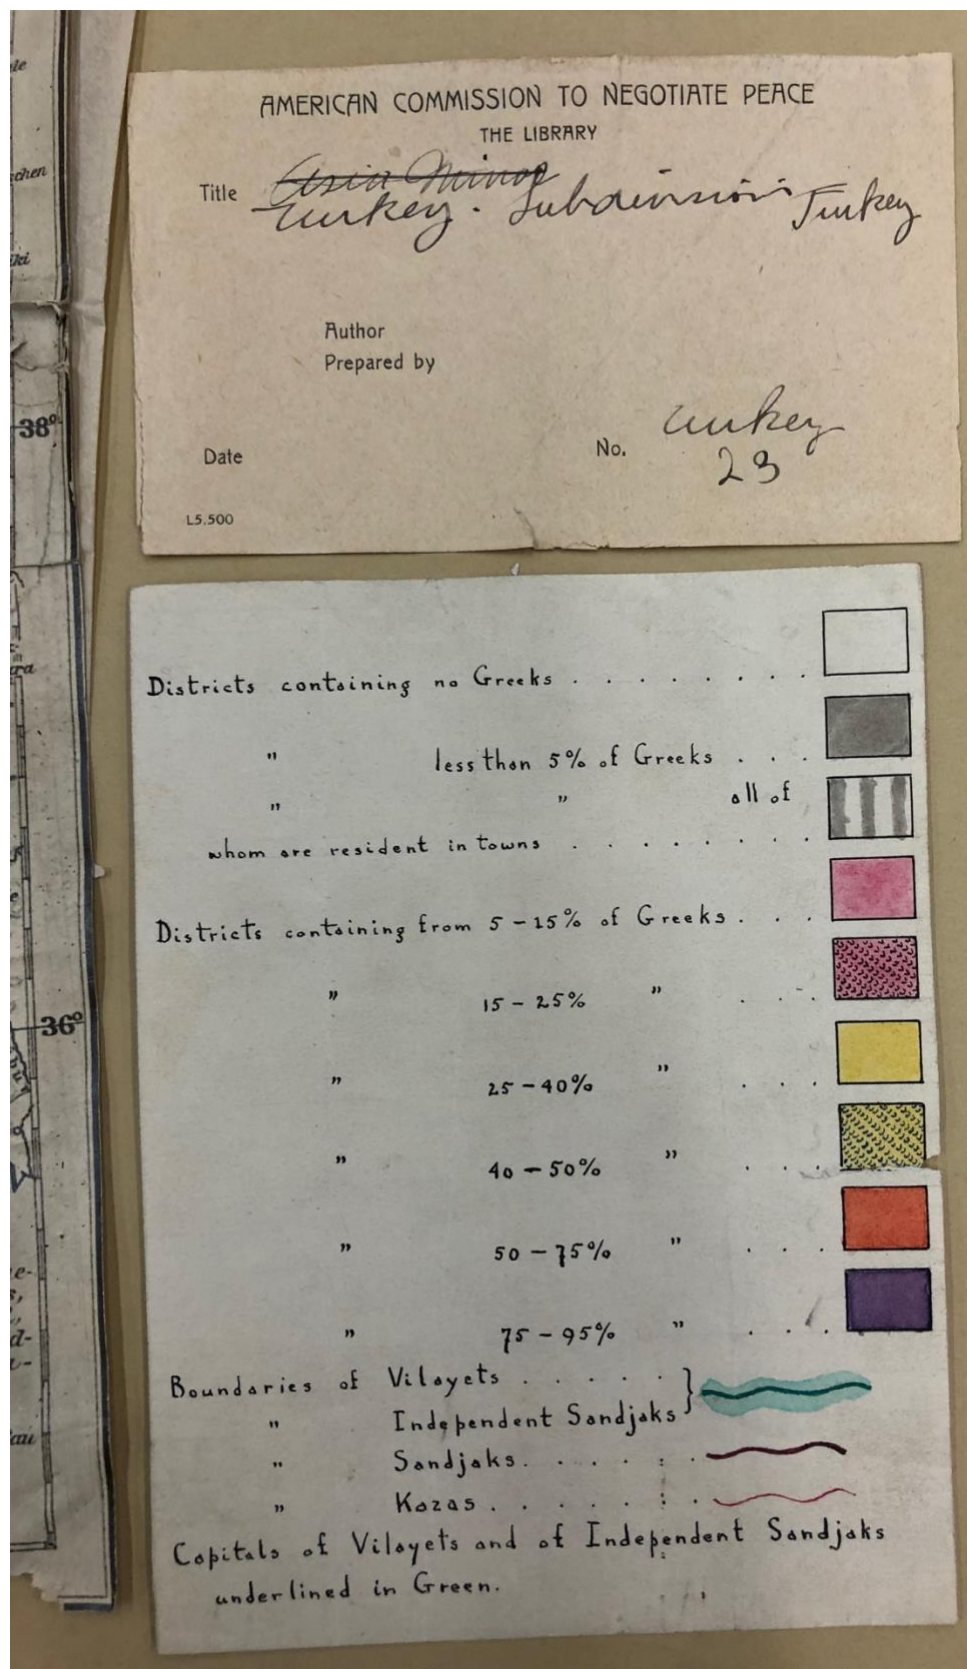 AMERICAN COMMISSION TO NEGOTIATE PEACE
THE LIBRARY
Title Asia Minor
Turkey. Subdivision Turkey
Author
Prepared by
Turkey
Date No. 23
L5.500
Districts containing no Greeks . . . . . . . .
" less than 5% of Greeks . . .
" " all of
whom are resident in towns . . . . . . .
Districts containing from 5 - 15% of Greeks . . .
" 15 - 25% " . . .
" 25 - 40% " . . .
" 40 - 50% " . . .
" 50 - 75% " . . .
" 75 - 95% " . . . .
Boundaries of Vilayets . . . . . }
" Independent Sandjaks
" Sandjaks . . . . : .
" Kazas . . . . . : .
Capitals of Vilayets and of Independent Sandjaks
underlined in Green.
chen
38°
36°